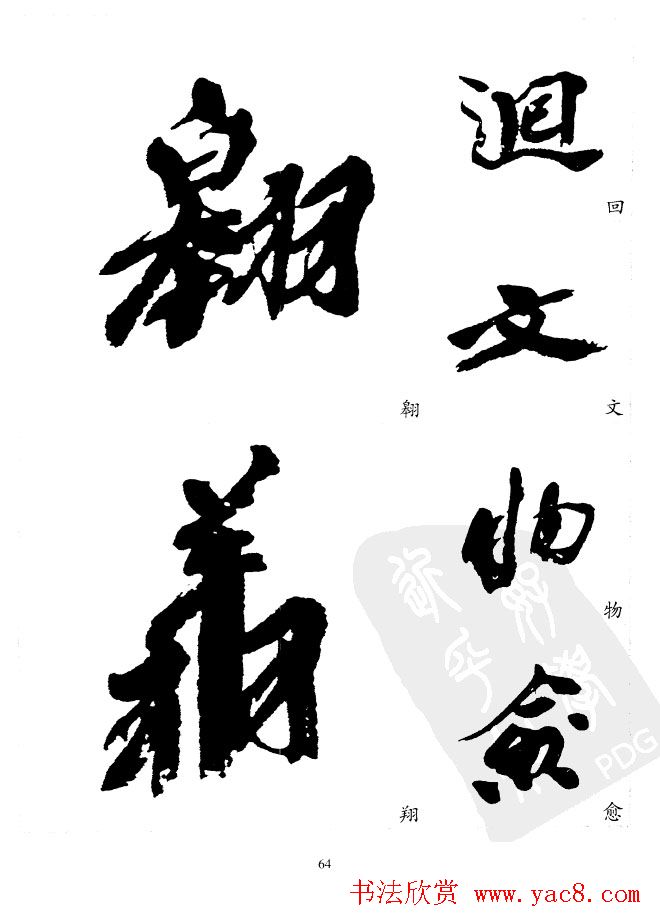 迴
回
文
文
物
物
愈
愈
翱
翱
翔
翔
PDG
64
书法欣赏 www.yac8.com